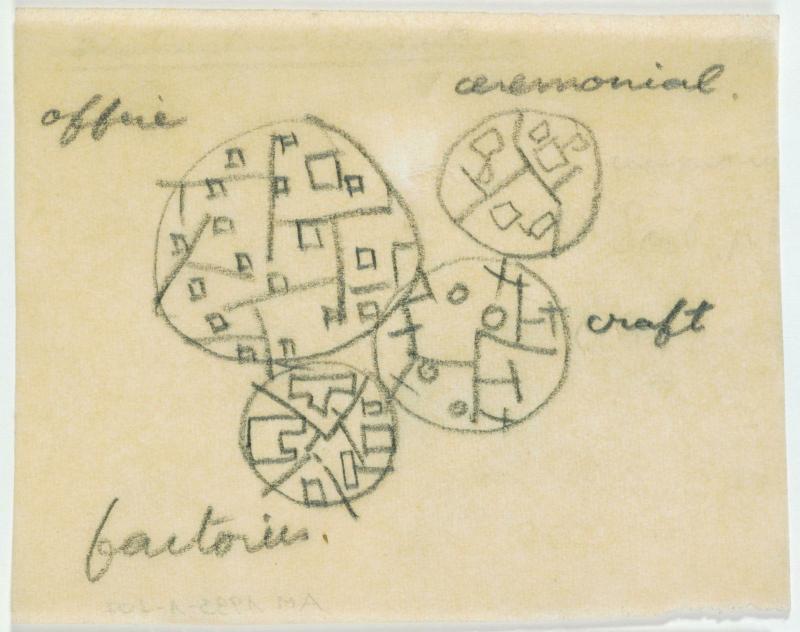 office
ceremonial.
craft
factories.
AM 1995-1-207